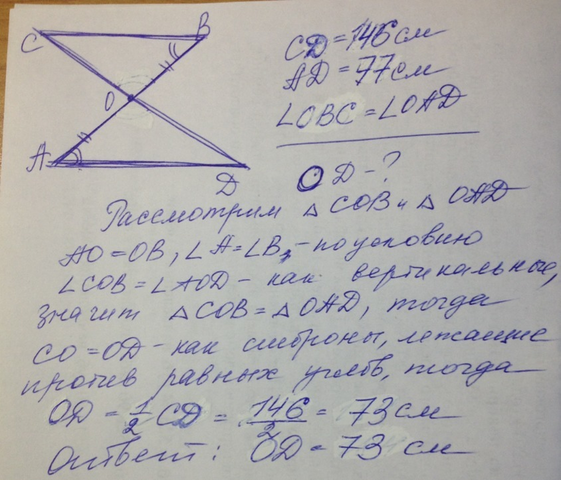 C
B
O
A
D
CD = 146 см
AD = 77 см
∠OBC = ∠OAD
OD - ?
Рассмотрим △ COB и △ OAD
AO = OB, ∠A = ∠B, - по условию
∠COB = ∠AOD - как вертикальные,
значит △COB = △OAD, тогда
CO = OD - как стороны, лежащие
против равных углов, тогда
OD = 1/2 CD = 146/2 = 73 см
Ответ: OD = 73 см